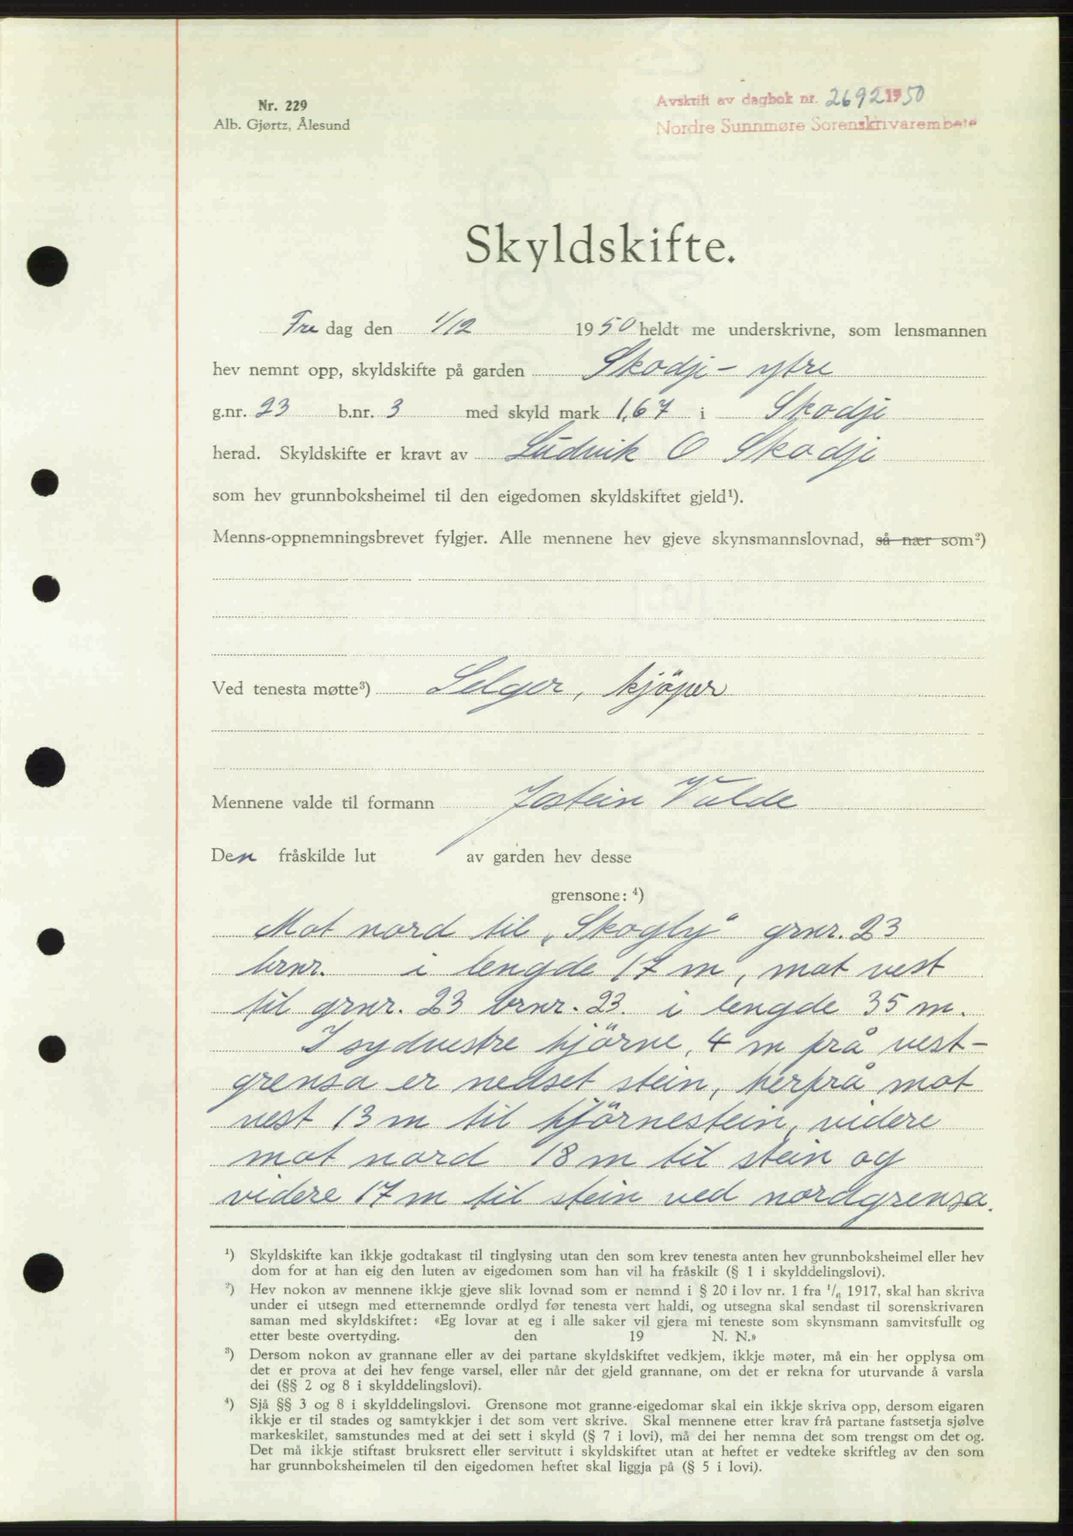 Nr. 229
Alb. Gjørtz, Ålesund
Avskrift av dagbok nr. 2692 1950
Nordre Sunnmøre Sorenskrivarembete
Skyldskifte.
Fredag den 1/12 1950 heldt me underskrivne, som lensmannen
hev nemnt opp, skyldskifte på garden Skodje - ytre
g.nr. 23 b.nr. 3 med skyld mark 1,67 i Skodje
herad. Skyldskifte er kravt av Ludvik O Skodje
som hev grunnboksheimel til den eigedomen skyldskiftet gjeld¹).
Menns-oppnemningsbrevet fylgjer. Alle mennene hev gjeve skynsmannslovnad, så nær som²)
Ved tenesta møtte³) Selger, kjöper
Mennene valde til formann Jostein Valde
Den fråskilde lut av garden hev desse
grensone: ⁴)
Mot nord til „Skogly" grnr. 23
brnr. i lengde 17 m, mot vest
til grnr. 23 brnr. 23. i lengde 35 m.
I sydvestre hjörne, 4 m frå vest-
grensa er nedset stein, herfrå mot
vest 13 m til hjörnestein, videre
mot nord 18 m til stein og
videre 17 m til stein ved nordgrensa.
¹) Skyldskifte kan ikkje godtakast til tinglysing utan den som krev tenesta anten hev grunnboksheimel eller hev
dom for at han eig den luten av eigedomen som han vil ha fråskilt (§ 1 i skylddelingslovi).
²) Hev nokon av mennene ikkje gjeve slik lovnad som er nemnd i § 20 i lov nr. 1 fra 1/6 1917, skal han skriva
under ei utsegn med etternemnde ordlyd før tenesta vert haldi, og utsegna skal sendast til sorenskrivaren
saman med skyldskiftet: «Eg lovar at eg i alle saker vil gjera mi teneste som skynsmann samvitsfullt og
etter beste overtyding. den 19 N. N.»
³) Dersom nokon av grannane eller av dei partane skyldskiftet vedkjem, ikkje møter, må ein her opplysa om
det er prova at dei hev fenge varsel, eller når det gjeld grannane, om det er rekna for uturvande å varsla
dei (§§ 2 og 8 i skylddelingslovi).
⁴) Sjå §§ 3 og 8 i skylddelingslovi. Grensone mot granne-eigedomar skal ein ikkje skriva opp, dersom eigaren
ikkje er til stades og samtykkjer i det som vert skrive. Skal mennene etter krav frå partane fastsetja sjølve
markeskilet, samstundes med at dei sett i skyld (§ 7 i lovi), må dei her nemna det som trengst om det og.
Det må ikkje stiftast bruksrett eller servitutt i skyldskiftet utan at heftet er vedteke skriftleg av den som
har grunnboksheimelen til den eigedomen heftet skal liggja på (§ 5 i lovi).